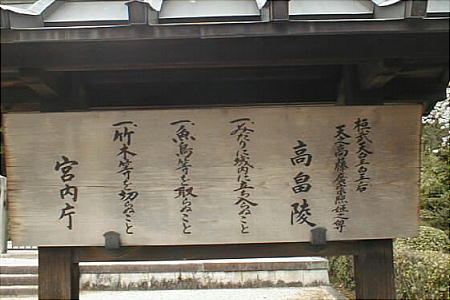 桓武天皇皇后
天之高藤廣宗照姫之尊
高畠陵
一、みだりに域内に立ち入らぬこと
一、魚鳥等を取らぬこと
一、竹木等を切らぬこと
宮内庁